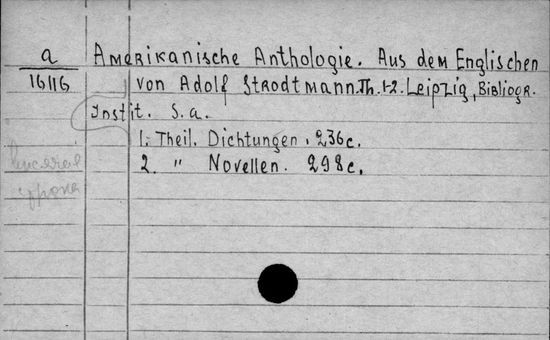 a
16116
Amerikanische Anthologie. Aus dem Englischen
von Adolf Strodtmann. Th. 1-2. Leipzig, Bibliogr.
Instit. S.a.
1. Theil. Dichtungen. 236c.
2. " Novellen. 298c.